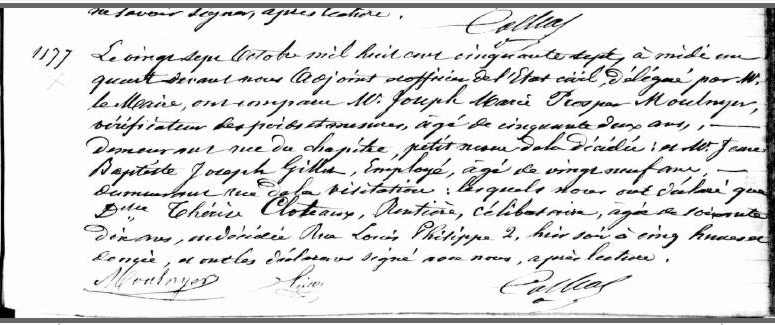 ne savoir signer, après lecture.
1177 Le vingt sept Octobre mil huit cent cinquante sept, à midi un
quart devant nous Adjoint officier de l'Etat civil, délégué par Mr.
le Maire, ont comparu Mr. Joseph Marie Prosper Moulnyer,
vérificateur des poids et mesures, âgé de cinquante deux ans,
demeurant rue du chapitre, petit neveu de la décédée : et Mr. Jean
Baptiste Joseph Employé, âgé de vingt neuf ans,
demeurant rue de la visitation : lesquels nous ont déclaré que
Dlle Thérèse Cloteaux, Rentière, célibataire, âgée de soixante
dix ans, est décédée Rue Louis Philippe 2, hier soir à cinq heures et
demie, et ont les déclarans signé avec nous, après lecture.
Moulnyer